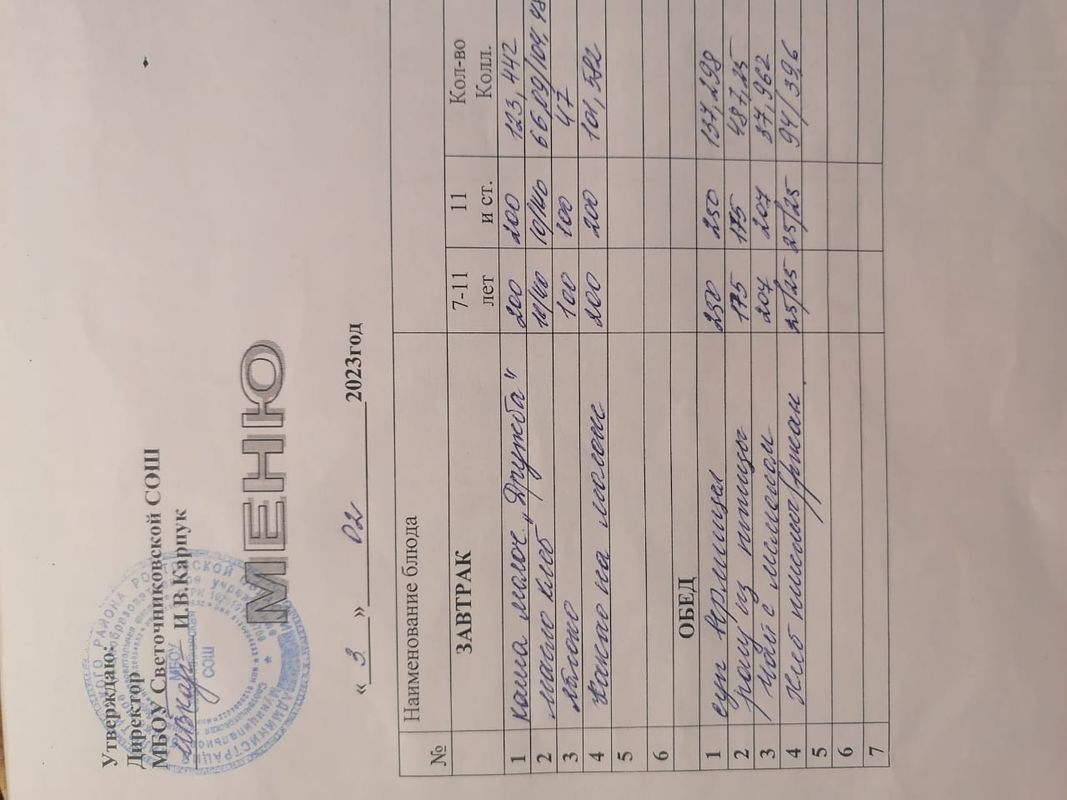 Утверждаю:
Директор
МБОУ Светочниковской СОШ
И.В.Карпук
МБОУ
СОШ
МЕНЮ
« 3 » 02 2023год
№ Наименование блюда 7-11 лет 11 и ст. Кол-во Колл.
ЗАВТРАК
1 каша молоч. „Дружба" 200 200 123,442
2 масло хлеб 10/40 10/40 66,09/104,48
3 яблоко 100 100 47
4 какао на молоке 200 200 101,592
5
6
ОБЕД
1 суп вермишел 250 250 137,298
2 рагу из птицы 175 175 487,25
3 чай с лимоном 207 207 37,962
4 хлеб пшенич/ржан. 25/25 25/25 94/39,6
5
6
7